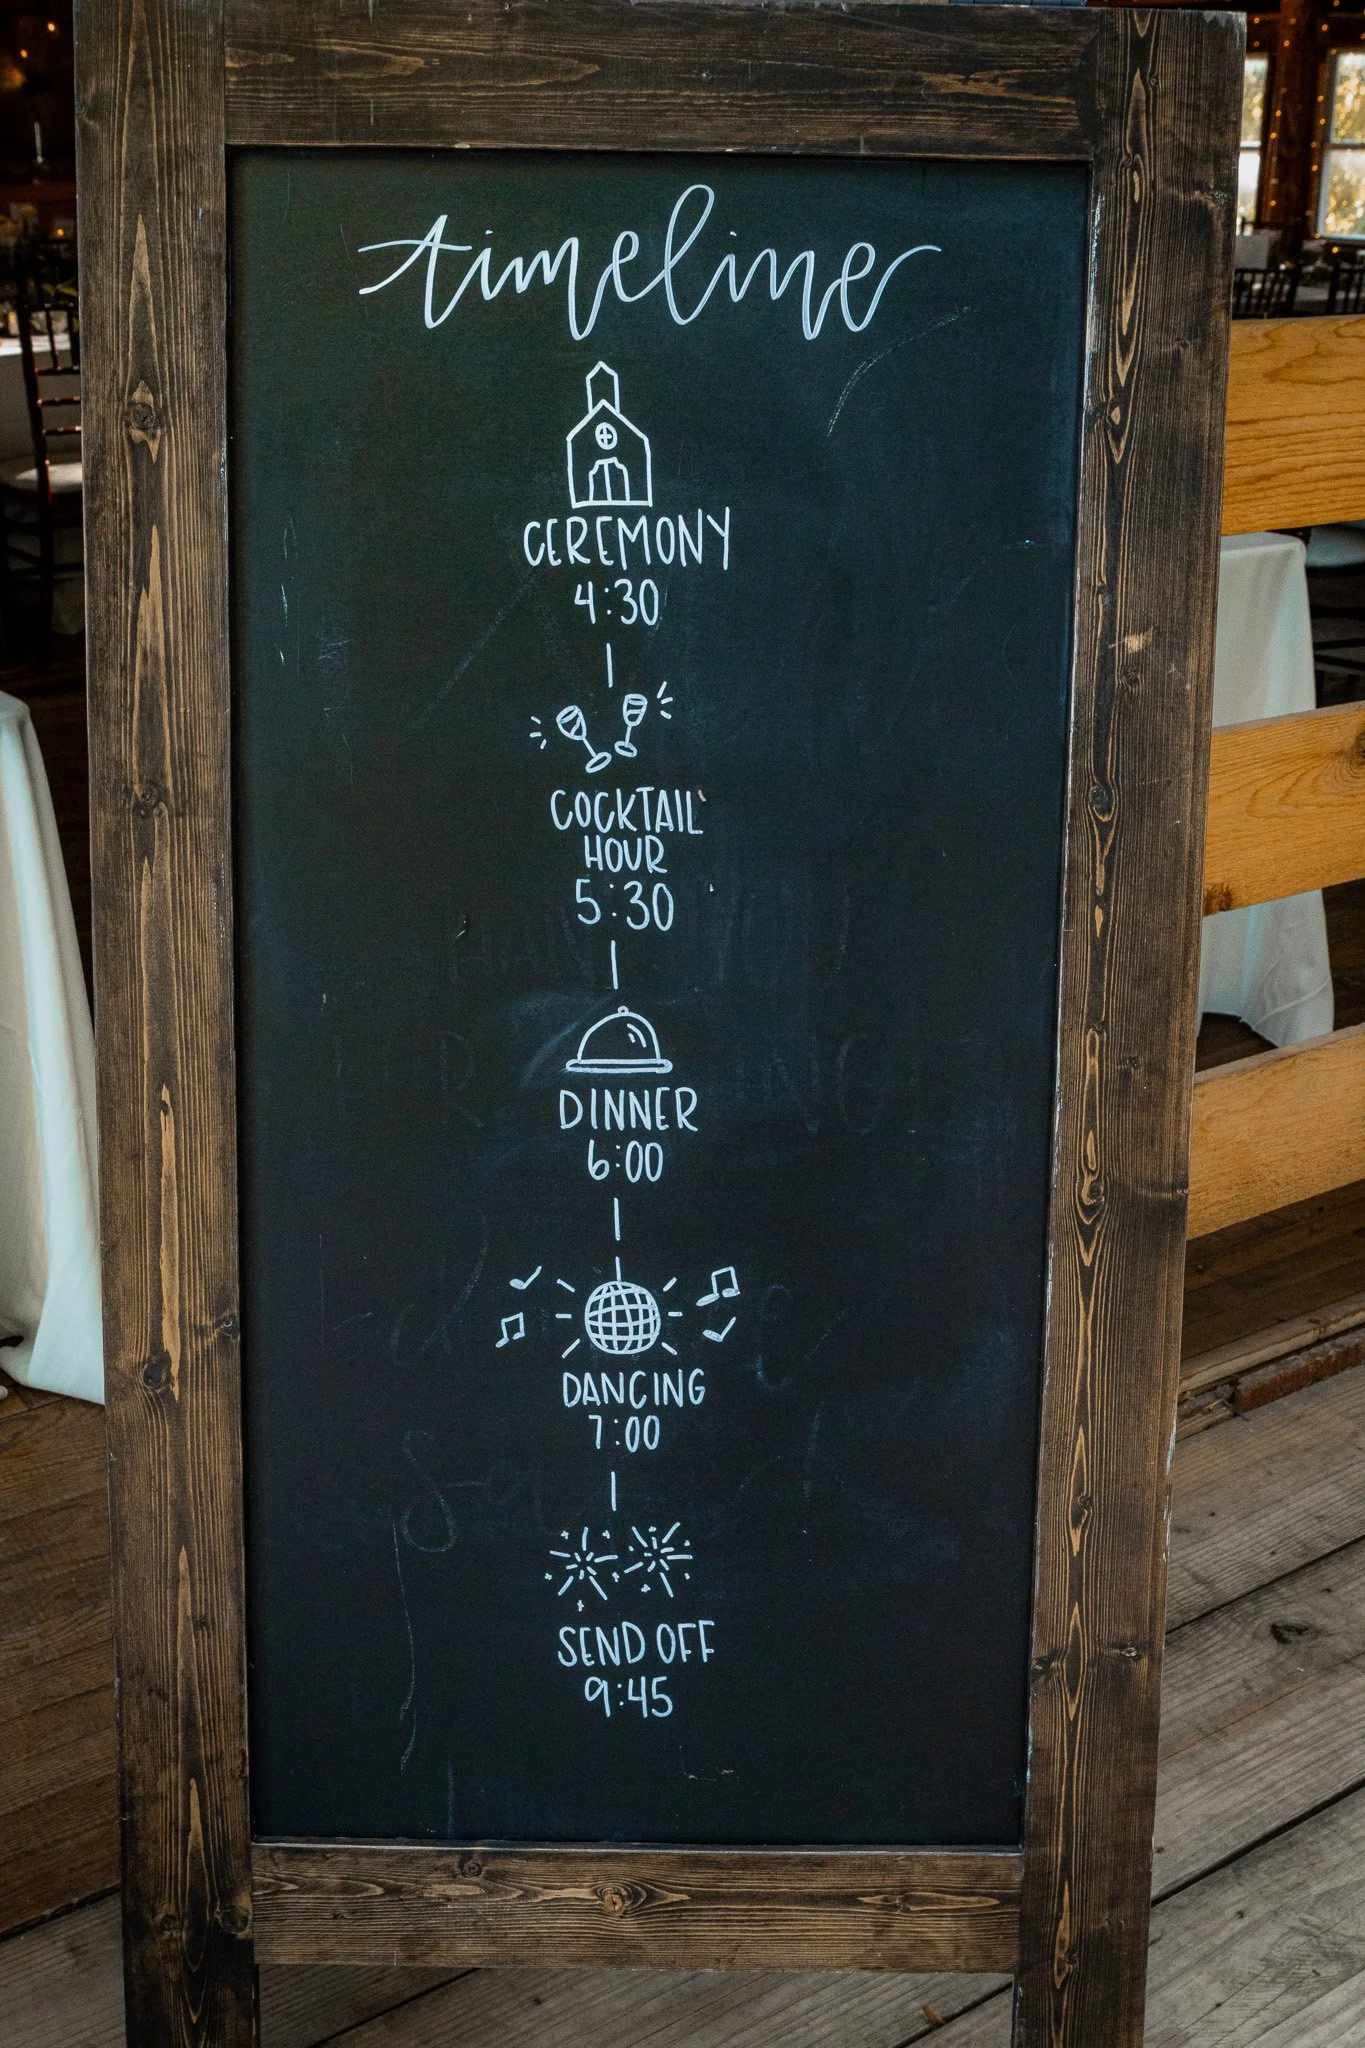 timeline
CEREMONY
4:30
COCKTAIL
HOUR
5:30
DINNER
6:00
DANCING
7:00
SEND OFF
9:45